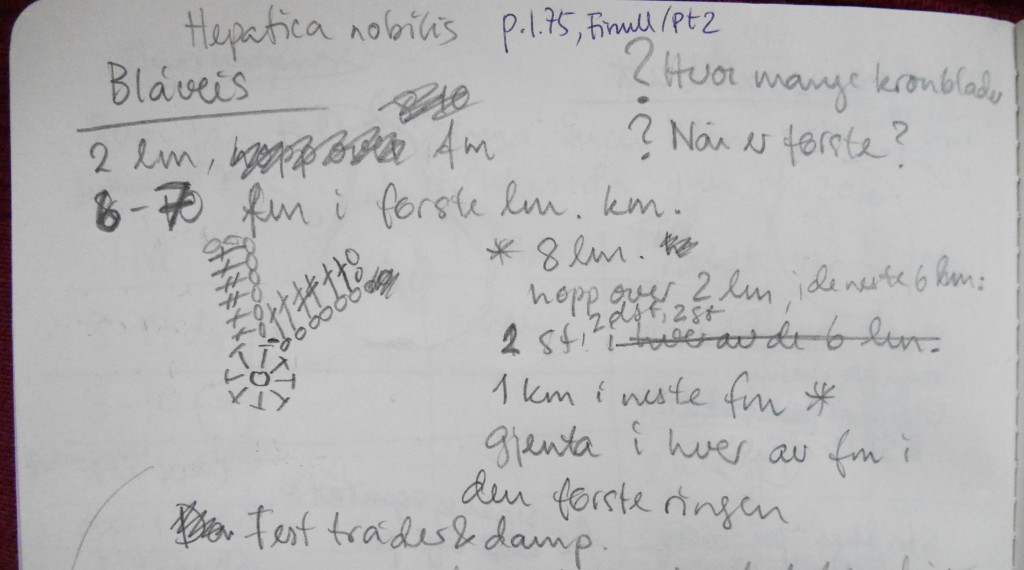 Hepatica nobilis p.1.75, Finull/pt2
Blåveis
? Hvor mange kronblader
? Når er første?
2 lm, 4m
6-7 fm i første lm. km.
* 8 lm.
hopp over 2 lm, i de neste 6 lm:
2 st, 2 dst, 2 st i hver av de 6 lm.
1 km i neste fm *
gjenta i hver av fm i
den første ringen
Fest tråder & damp.